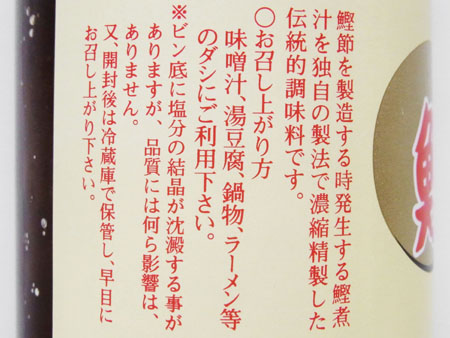 鰹節を製造する時発生する鰹煮
汁を独自の製法で濃縮精製した
伝統的調味料です。
○お召し上がり方
味噌汁、湯豆腐、鍋物、ラーメン等
のダシにご利用下さい。
※ビン底に塩分の結晶が沈澱する事が
ありますが、品質には何ら影響は、
ありません。
又、開封後は冷蔵庫で保管し、早目に
お召し上がり下さい。